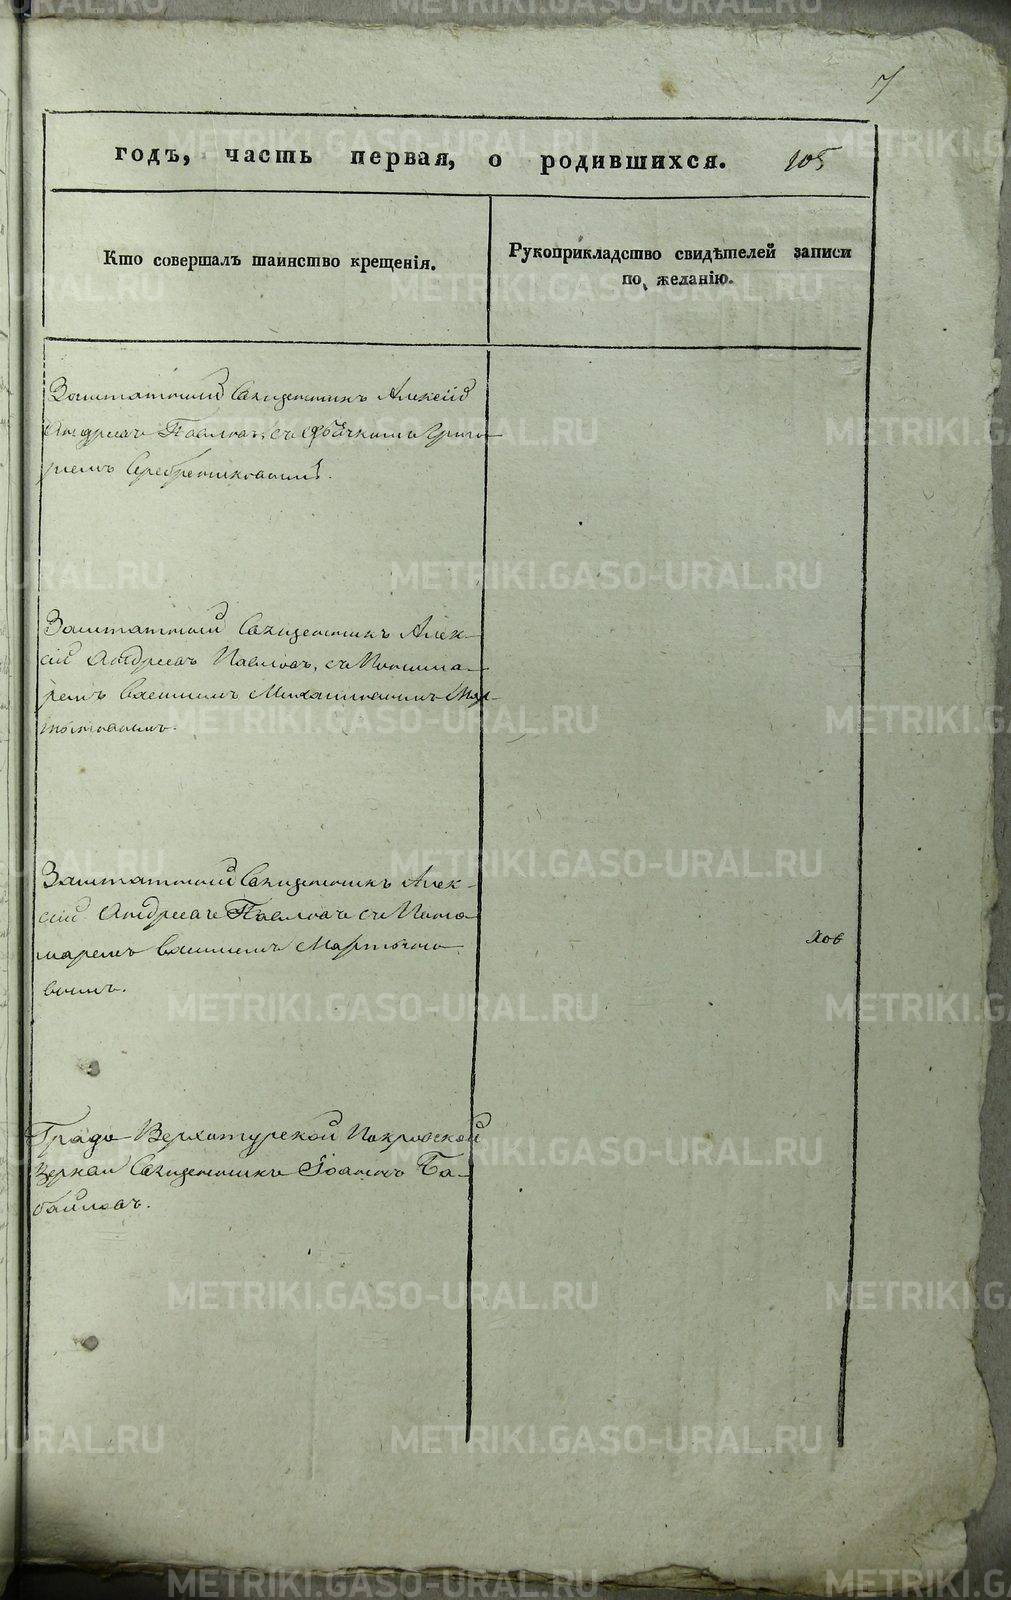 7
годъ, часть первая, о родившихся. 105
Кто совершалъ таинство крещенія.
Рукоприкладство свидѣтелей записи
по желанію.
Заштатный Священникъ Алексій
Андреевъ Павловъ, съ Григо-
ріемъ Серебренниковымъ.
Заштатный Священникъ Алек-
сій Андреевъ Павловъ, съ Понома-
ремъ Василіемъ Михайловымъ Мар-
тыновымъ.
Заштатный Священникъ Алек-
сій Андреевъ Павловъ съ Поно-
маремъ Василіемъ Мартыно-
вымъ.
Града Верхотурской Покровской
Церкви Священникъ Іоаннъ Ба-
байловъ.
METRIKI.GASO-URAL.RU